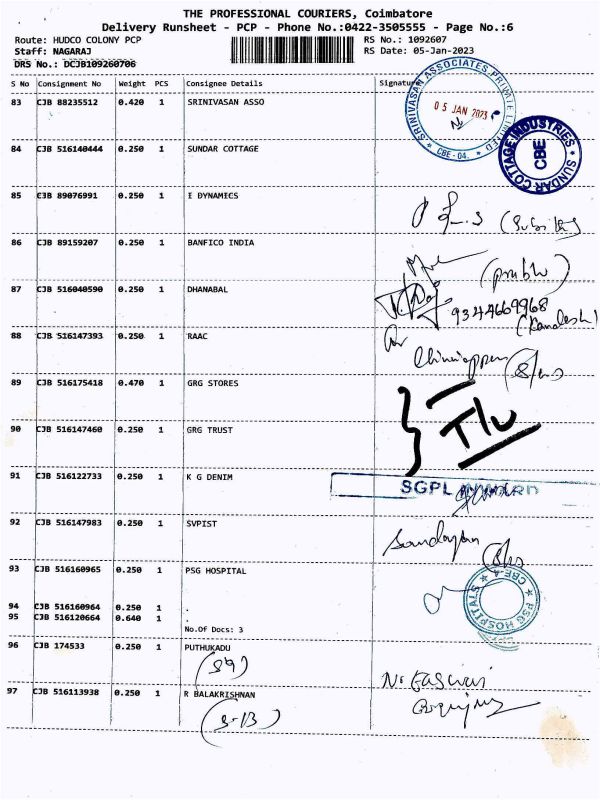 THE PROFESSIONAL COURIERS, Coimbatore
Delivery Runsheet - PCP - Phone No.:0422-3505555 - Page No.:6
Route: HUDCO COLONY PCP RS No.: 1092607
Staff: NAGARAJ RS Date: 05-Jan-2023
DRS No.: DCJB109260706
S No Consignment No Weight PCS Consignee Details Signature
83 CJB 88235512 0.420 1 SRINIVASAN ASSO
SRINIVASAN ASSOCIATES PRIVATE LIMITED
05 JAN 2023
* CBE-04. *
84 CJB 516140444 0.250 1 SUNDAR COTTAGE
SUNDAR COTTAGE INDUSTRIES
CBE
85 CJB 89076991 0.250 1 I DYNAMICS
86 CJB 89159207 0.250 1 BANFICO INDIA
(prabhu)
87 CJB 516040590 1 DHANABAL
9344669968
88 CJB 516147393 0.250 1 RAAC
89 CJB 516175418 0.470 1 GRG STORES
90 CJB 516147460 0.250 1 GRG TRUST
91 CJB 516122733 0.250 1 K G DENIM
SGPL
92 CJB 516147983 0.250 1 SVPIST
93 CJB 516160965 0.250 1 PSG HOSPITAL
* PSG HOSPITALS * CBE-4
94 CJB 516160964 0.250 1 .
95 CJB 516120664 0.640 1 .
No.Of Docs: 3
96 CJB 174533 0.250 1 PUTHUKADU
97 CJB 516113938 0.250 1 R BALAKRISHNAN